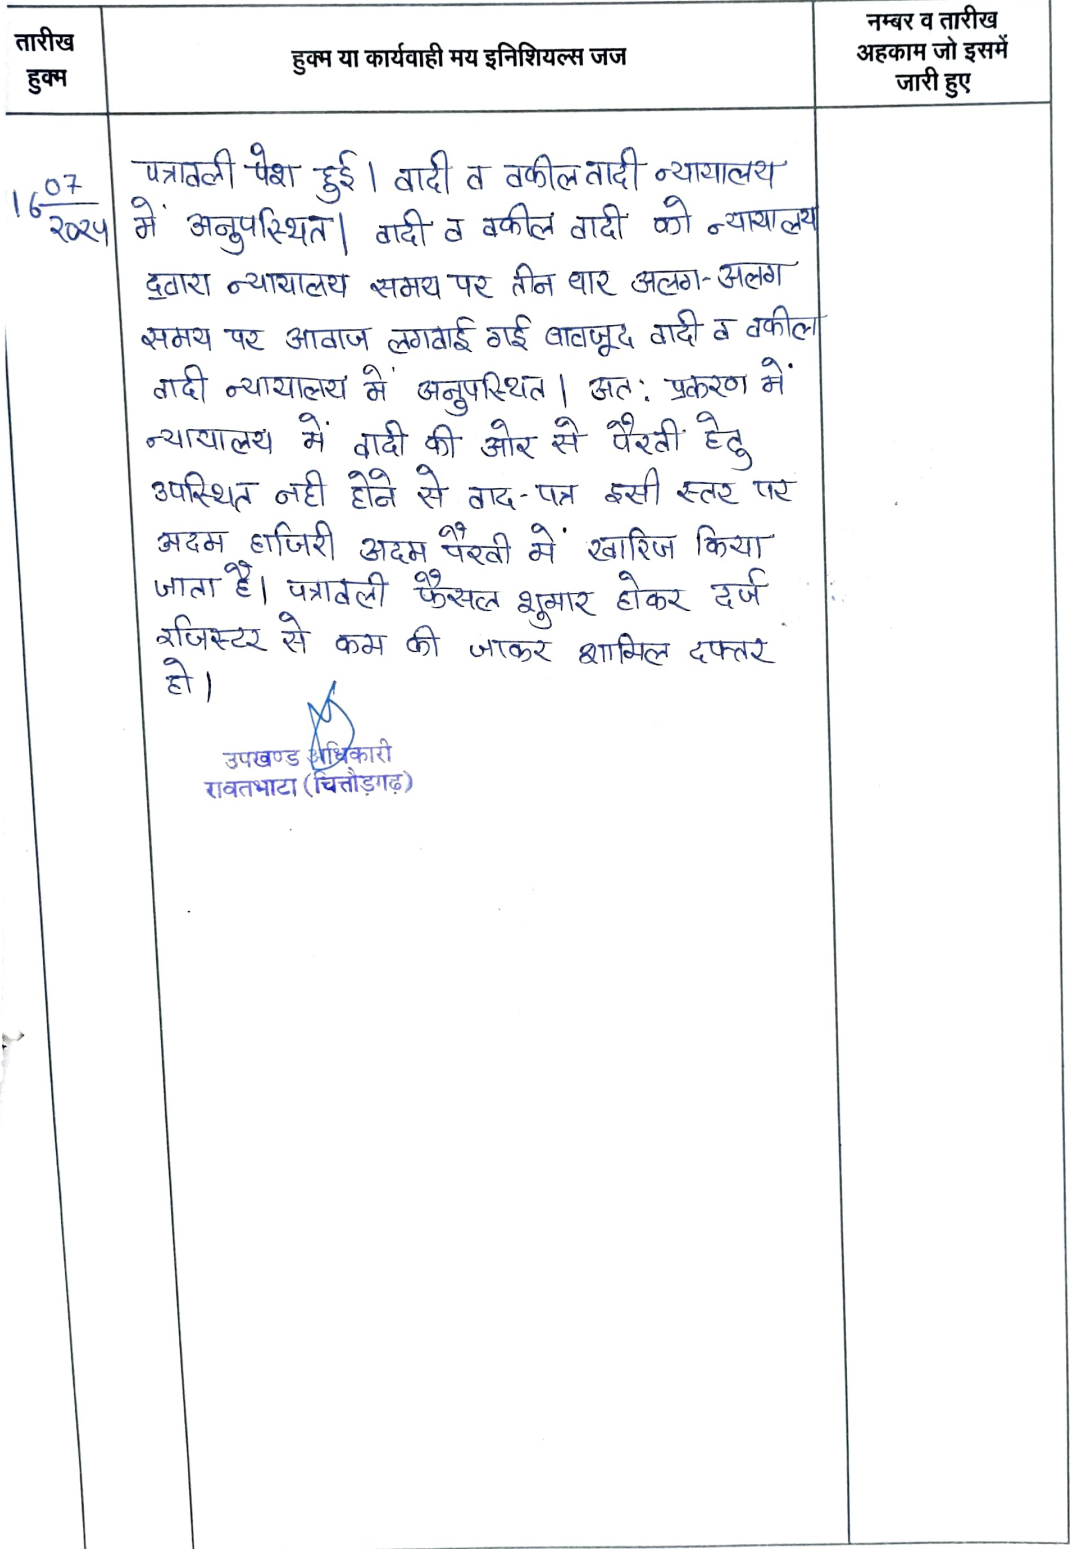 तारीख
हुक्म
हुक्म या कार्यवाही मय इनिशियल्स जज
नम्बर व तारीख
अहकाम जो इसमें
जारी हुए
16 07
पत्रावली पेश हुई। वादी व वकील वादी न्यायालय
में अनुपस्थित। वादी व वकील वादी को न्यायालय
द्वारा न्यायालय समय पर तीन बार अलग-अलग
समय पर आवाज लगवाई गई बावजूद वादी व वकील
वादी न्यायालय में अनुपस्थित। अत: प्रकरण में
न्यायालय में वादी की ओर से पैरवी हेतु
उपस्थित नही होने से वाद-पत्र इसी स्तर पर
अदम हाजिरी अदम पैरवी में खारिज किया
जाता है। पत्रावली फैसल शुमार होकर दर्ज
रजिस्टर से कम की जाकर शामिल दफ्तर
हो।
उपखण्ड अधिकारी
रावतभाटा (चित्तौड़गढ़)